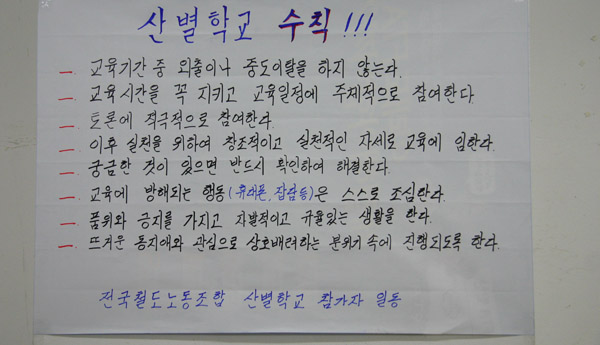 산별학교 수칙 !!!
— 교육기간 중 외출이나 중도이탈을 하지 않는다.
— 교육시간을 꼭 지키고 교육일정에 주체적으로 참여한다.
— 토론에 적극적으로 참여한다.
— 이후 실천을 위하여 창조적이고 실천적인 자세로 교육에 임한다.
— 궁금한 것이 있으면 반드시 확인하여 해결한다.
— 교육에 방해되는 행동(휴대폰, 잡담등)은 스스로 조심한다.
— 품위와 긍지를 가지고 자발적이고 규율있는 생활을 한다.
— 뜨거운 동지애와 관심으로 상호배려하는 분위기 속에 진행되도록 한다.
전국철도노동조합 산별학교 참가자 일동